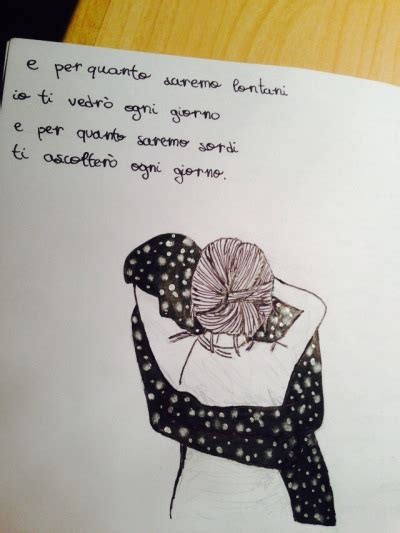 e per quanto saremo lontani
io ti vedrò ogni giorno
e per quanto saremo sordi
ti ascolterò ogni giorno.